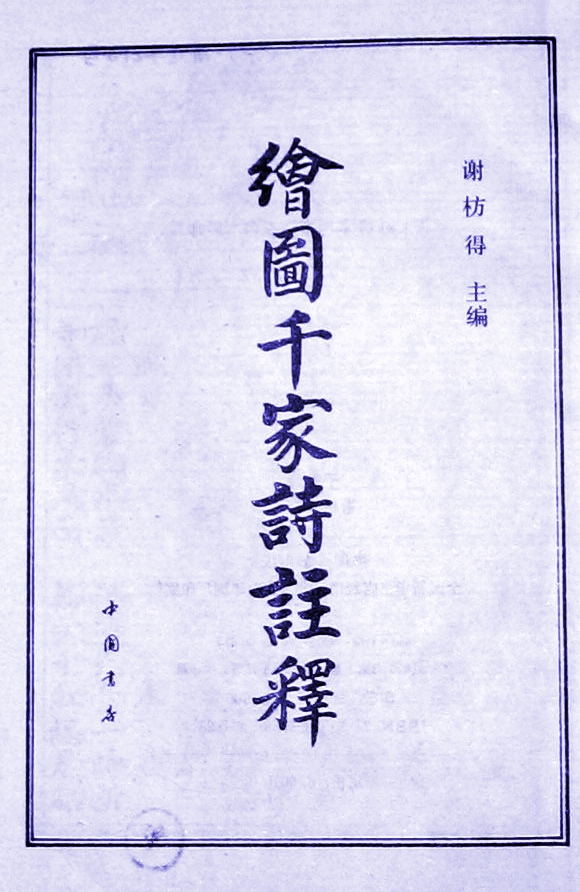 谢枋得 主编
繪圖千家詩註釋
中国书店